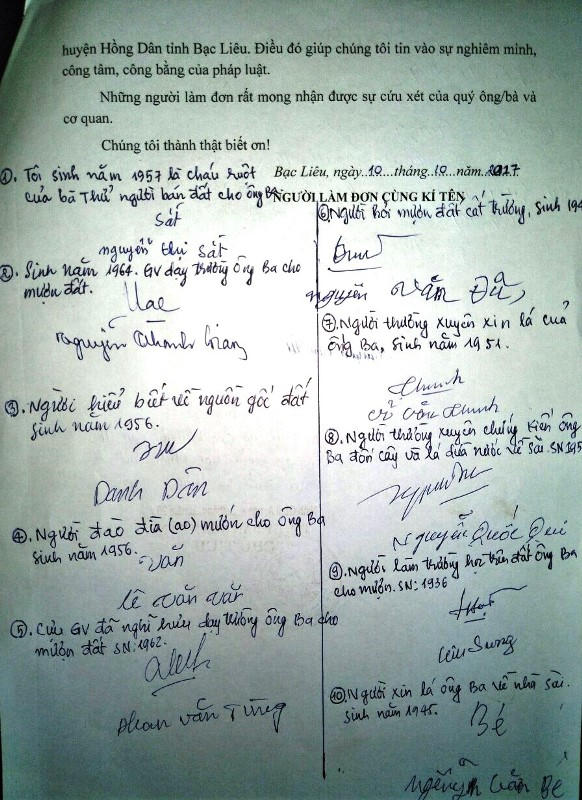 huyện Hồng Dân tỉnh Bạc Liêu. Điều đó giúp chúng tôi tin vào sự nghiêm minh,
công tâm, công bằng của pháp luật.
Những người làm đơn rất mong nhận được sự cứu xét của quý ông/bà và
cơ quan.
Chúng tôi thành thật biết ơn!
Bạc Liêu, ngày..10...tháng..10...năm..2017
NGƯỜI LÀM ĐƠN CÙNG KÍ TÊN
①. Tôi sinh năm 1957 là cháu ruột
của bà Thử người bán đất cho ông Ba
Sát
nguyễn thị Sát
②. Sinh năm 1964. GV dạy trường ông Ba cho
mượn đất.
Nguyễn Thanh Giang
③. Người hiểu biết về nguồn gốc đất
sinh năm 1956.
Danh Dân
④. Người đào đìa (ao) mướn cho ông Ba
sinh năm 1956.
Văn
Lê Văn Văn
⑤. Cựu GV đã nghỉ hưu dạy trường ông Ba cho
mượn đất SN: 1962.
Phan Văn Tùng
⑥. Người hỏi mượn đất cất trường, sinh 194
nguyễn Văn
⑦. Người thường xuyên xin lá của
ông Ba, sinh năm 1951.
⑧. Người thường xuyên chứng kiến ông
Ba đốn cây và lá dừa nước về sài. SN 195
Nguyễn Quốc Qui
⑨. Người làm trường học trên đất ông Ba
cho mượn. SN: 1936
⑩. Người xin lá ông Ba về nhà sài.
sinh năm 1945.
Bé
Nguyễn Văn Bé